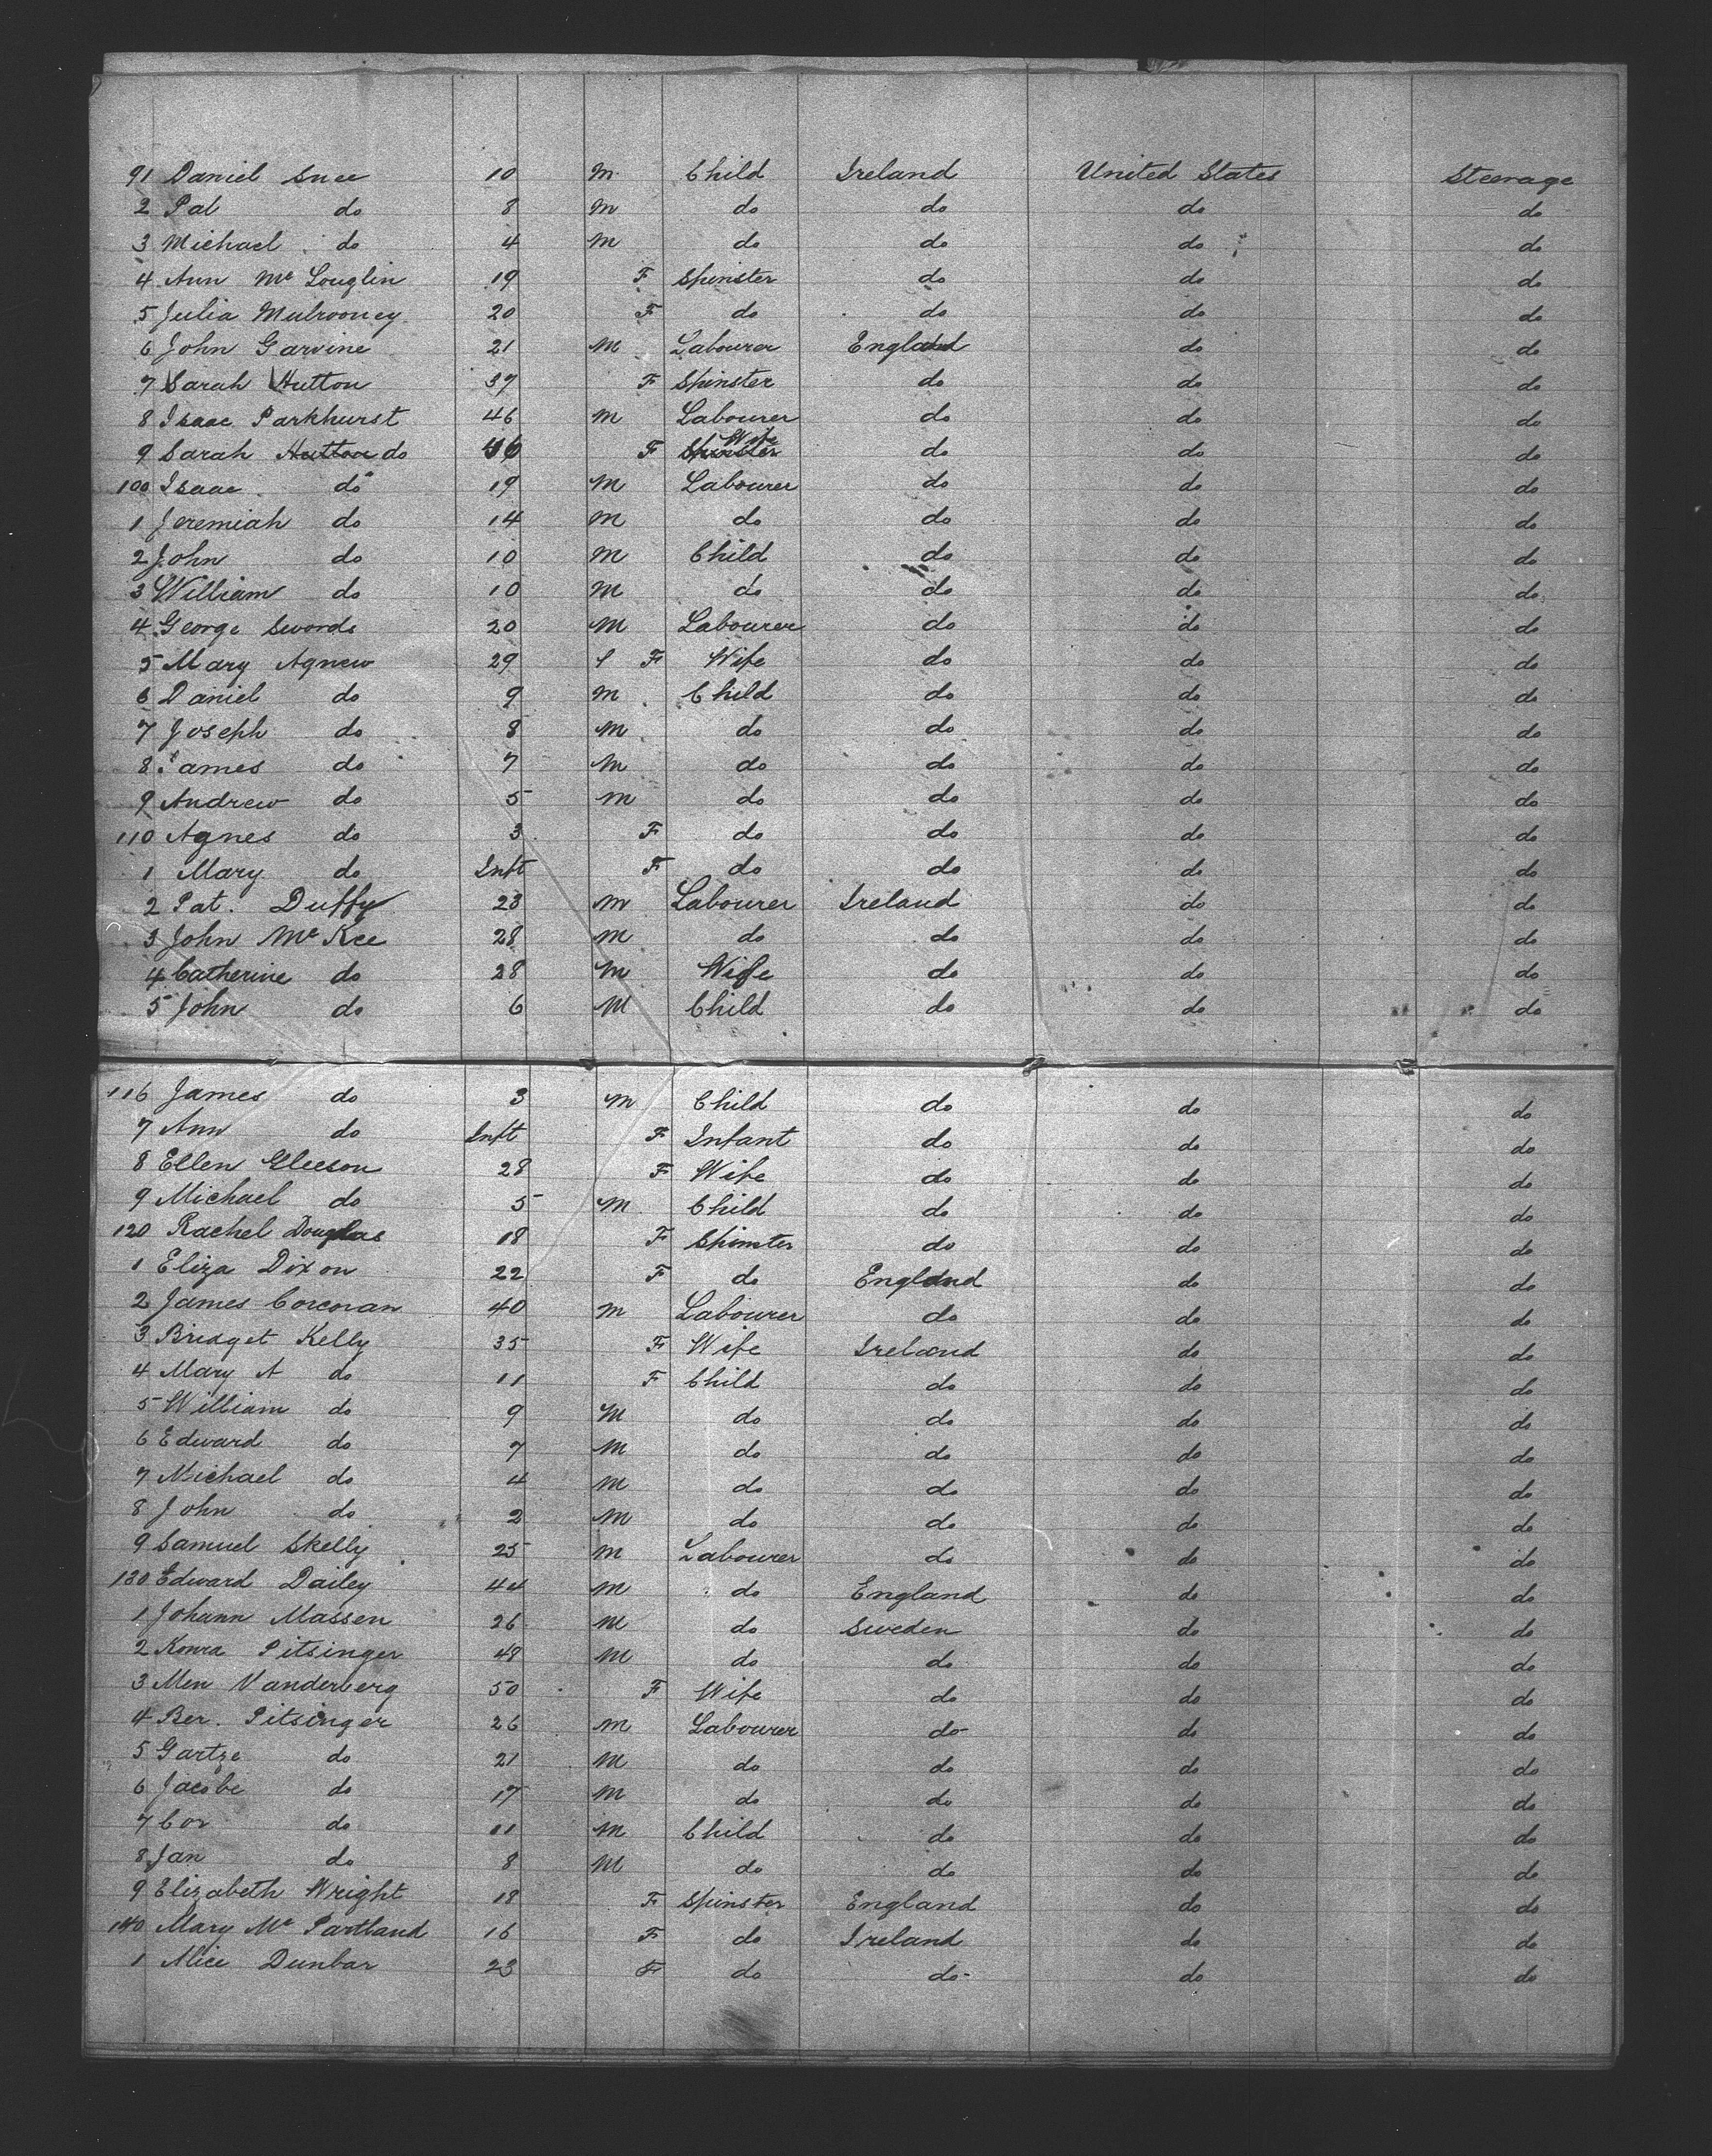 91 Daniel Snee 10 M Child Ireland United States Steerage
2 Pat do 8 M do do do do
3 Michael do 4 M do do do do
4 Ann Mc Louglin 19 F Spinster do do do
5 Julia Mulrooney 20 F do do do do
6 John Garvine 21 M Labourer England do do
7 Sarah Hutton 37 F Spinster do do do
8 Isaac Parkhurst 46 M Labourer do do do
9 Sarah Hutton do 46 F Spinster Wife do do do
100 Isaac do 19 M Labourer do do do
1 Jeremiah do 14 M do do do do
2 John do 10 M Child do do do
3 William do 10 M do do do do
4 George Swords 20 M Labourer do do do
5 Mary Agnew 29 F Wife do do do
6 Daniel do 9 M Child do do do
7 Joseph do 8 M do do do do
8 James do 7 M do do do do
9 Andrew do 5 M do do do do
110 Agnes do 3 F do do do do
1 Mary do Inft F do do do do
2 Pat. Duffy 23 M Labourer Ireland do do
3 John Mc Kee 28 M do do do do
4 Catherine do 28 M Wife do do do
5 John do 6 M Child do do do
116 James do 3 M Child do do do
7 Ann do Inft F Infant do do do
8 Ellen Gleeson 28 F Wife do do do
9 Michael do 5 M Child do do do
120 Rachel Douglas 18 F Spinster do do do
1 Eliza Dixon 22 F do England do do
2 James Corcoran 40 M Labourer do do do
3 Bridget Kelly 35 F Wife Ireland do do
4 Mary A do 11 F Child do do do
5 William do 9 M do do do do
6 Edward do 7 M do do do do
7 Michael do 4 M do do do do
8 John do 2 M do do do do
9 Samuel Skelly 25 M Labourer do do do
130 Edward Dailey 44 M do England do do
1 Johann Massen 26 M do Sweden do do
2 Konra Pitsinger 48 M do do do do
3 Men Vanderberg 50 F Wife do do do
4 Ber. Pitsinger 26 M Labourer do do do
5 Gartze do 21 M do do do do
6 Jacobe do 17 M do do do do
7 Cor do 11 M Child do do do
8 Jan do 8 M do do do do
9 Elizabeth Wright 18 F Spinster England do do
140 Mary Mc Partland 16 F do Ireland do do
1 Alice Dunbar 23 F do do do do